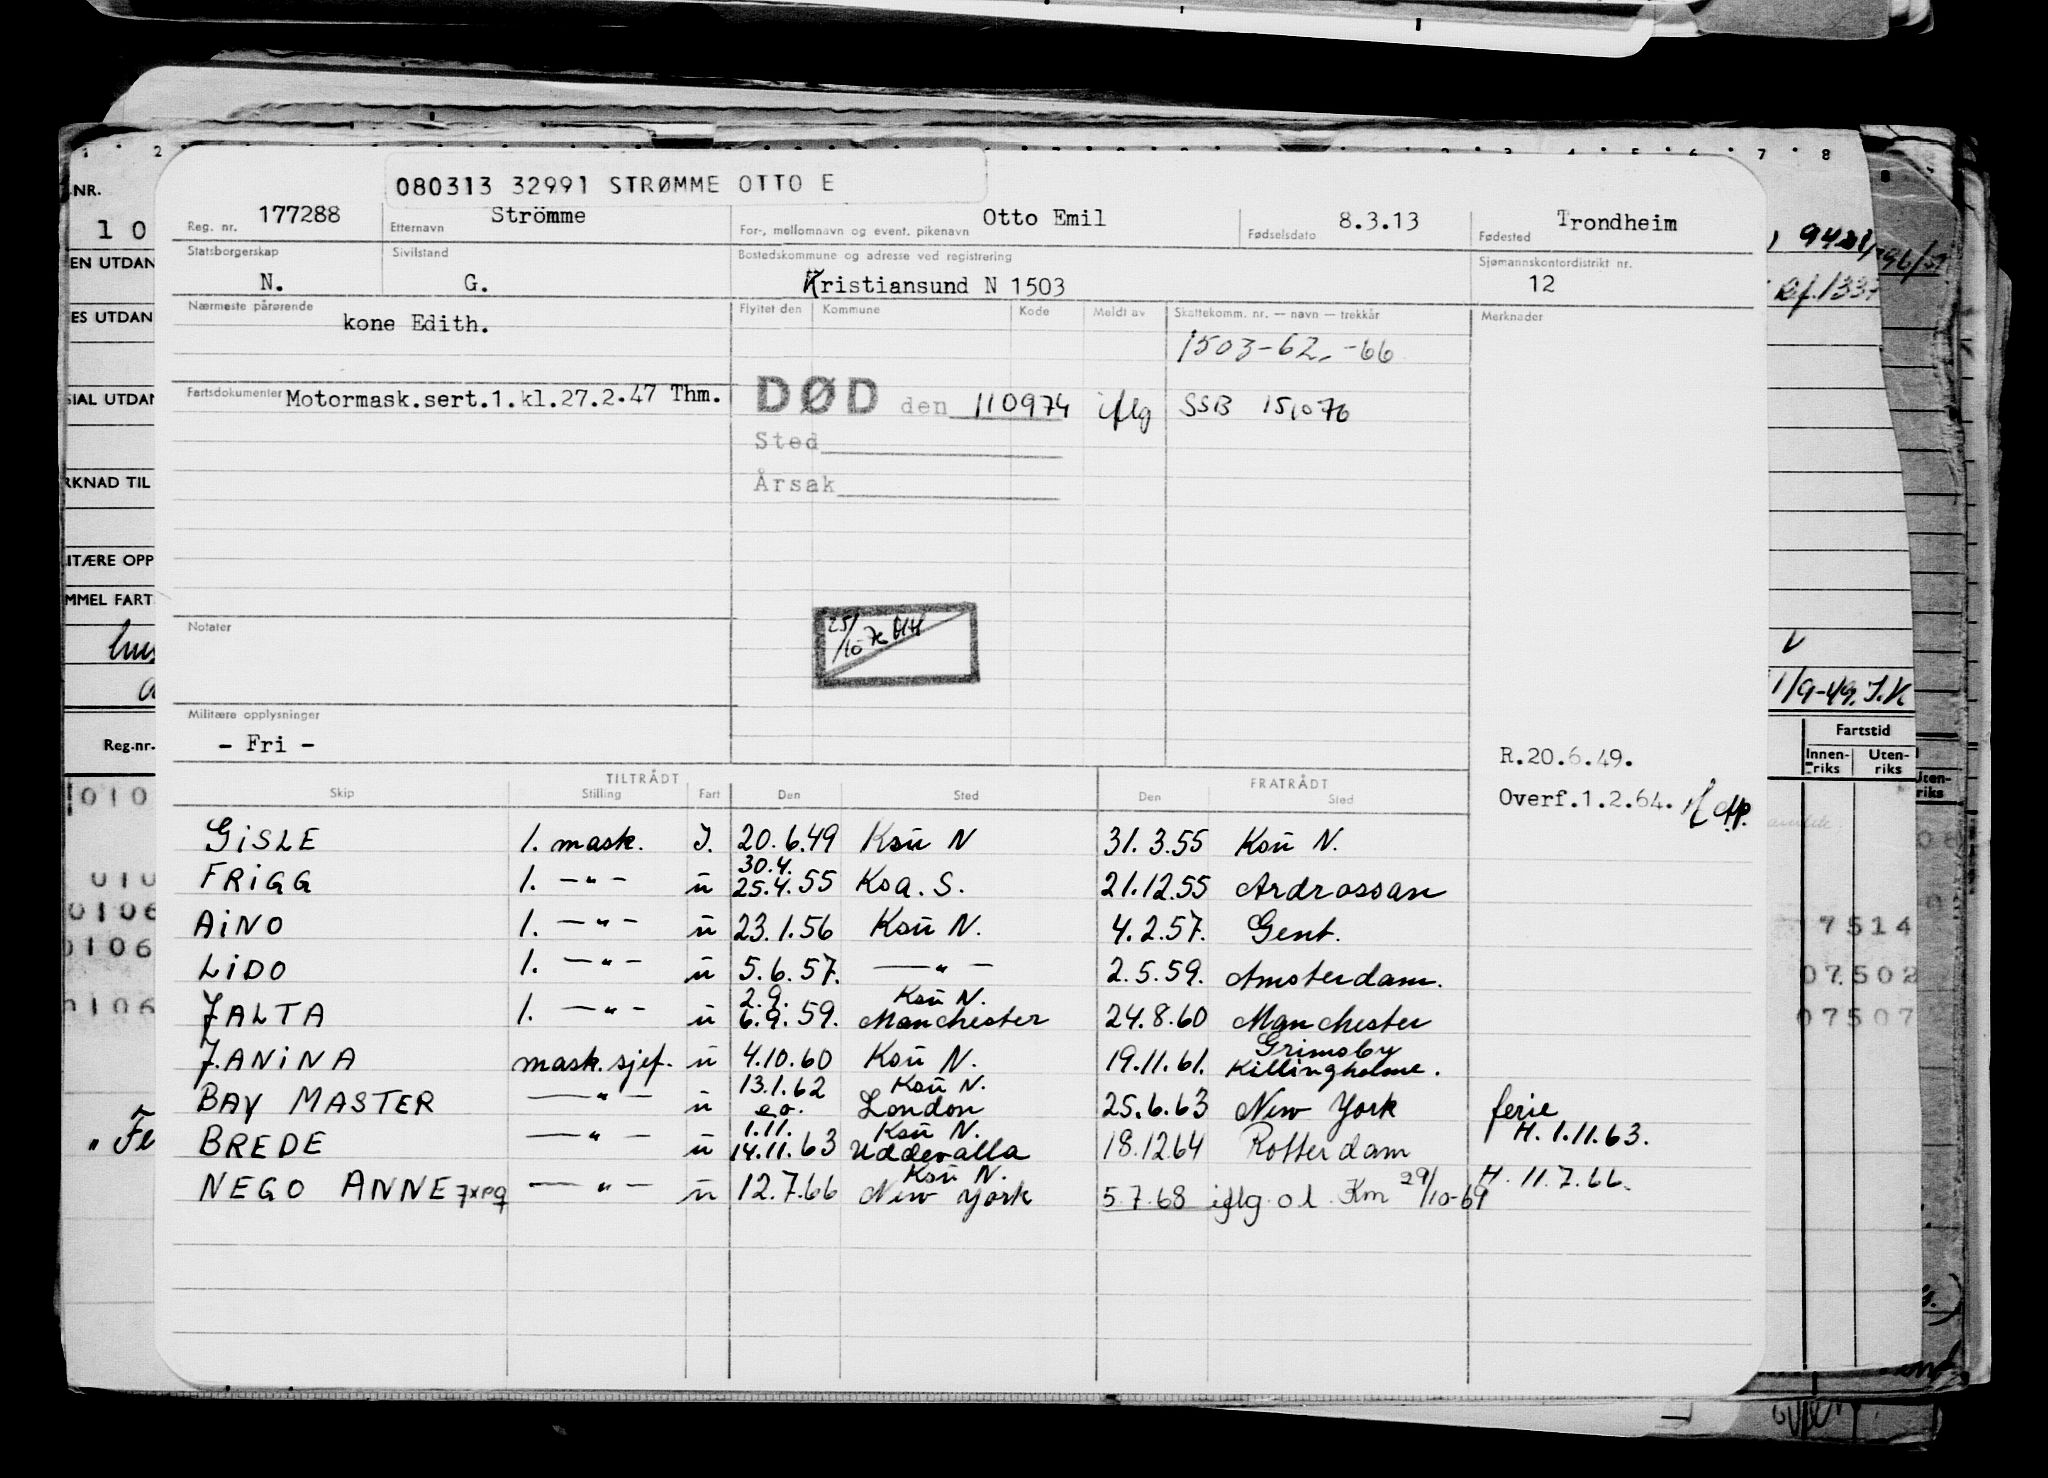 080313 32991 STRØMME OTTO E
Reg. nr. 177288 Etternavn Strömme For-, mellomnavn og event. pikenavn Otto Emil Fødselsdato 8.3.13 Fødested Trondheim
Statsborgerskap Sivilstand Bostedskommune og adresse ved registrering Sjømannskontordistrikt nr.
N. G. Kristiansund N 1503 12
Nærmeste pårørende Flyttet den Kommune Kode Meldt av Skattekomm. nr. — navn — trekkår Merknader
kone Edith.
1503-62,-66
Fartsdokumenter Motormask.sert.1.kl.27.2.47 Thm.
DØD den 110974 iflg SSB 151076
Sted
Årsak
Notater
25/10-76
Militære opplysninger
- Fri -
R.20.6.49.
Overf.1.2.64.
TILTRÅDT FRATRÅDT
Skip Stilling Fart Den Sted Den Sted
GISLE 1. mask. I. 20.6.49 Ksu N 31.3.55 Ksu N.
30.4.
FRIGG 1. —"— u 25.4.55 Ksa. S. 21.12.55 Ardrossan
AINO 1. —"— u 23.1.56 Ksu N. 4.2.57. Gent.
LIDO 1. —"— u 5.6.57. —"— 2.5.59. Amsterdam.
2.9. Ksu N.
JALTA 1. —"— u 6.9.59. Manchester 24.8.60 Manchester
Grimsby
JANINA mask.sjef. u 4.10.60 Ksu N. 19.11.61. Killingholme.
13.1.62 Ksu N.
BAY MASTER —"— u e.o. London 25.6.63 New York ferie
1.11. Ksu N. H. 1.11.63.
BREDE —"— u 14.11.63 Uddevalla 18.12.64 Rotterdam
Ksu N. 29/10-69 H. 11.7.66.
NEGO ANNE 7xpq —"— u 12.7.66 New York 5.7.68 iflg. o.l. Km
NR.
1 0
EN UTDAN
ES UTDAN
SIAL UTDAN
RKNAD TIL
ITÆRE OPP
MMEL FART
Reg.nr.
010
010
0106
0106
0106
1/9-49. J.K
Fartstid
Innen-riks Uten-riks
7514
07502
07507